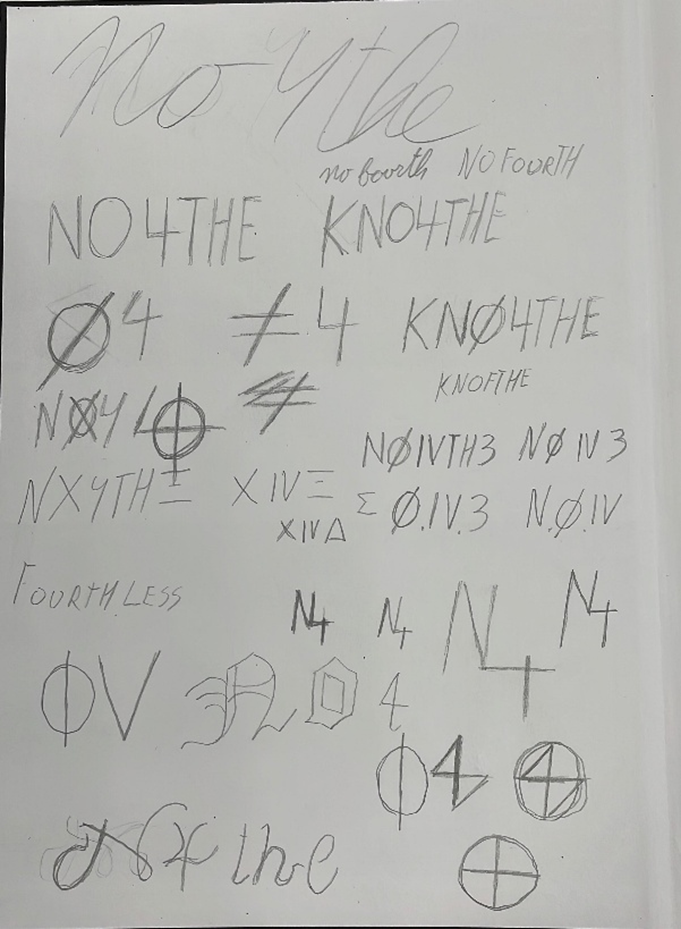 No 4the
no fourth NO FOURTH
NO4THE KNO4THE
Ø4 ≠4 KNØ4THE
KNOFTHE
NØIVTH3 NØ IV 3
NX4THΞ XIVΞ
XIVΔ Σ Ø.IV.3 N.Ø.IV
FOURTHLESS
N4 N4 N4 N4
ΦV NO 4
Φ4
N4 the